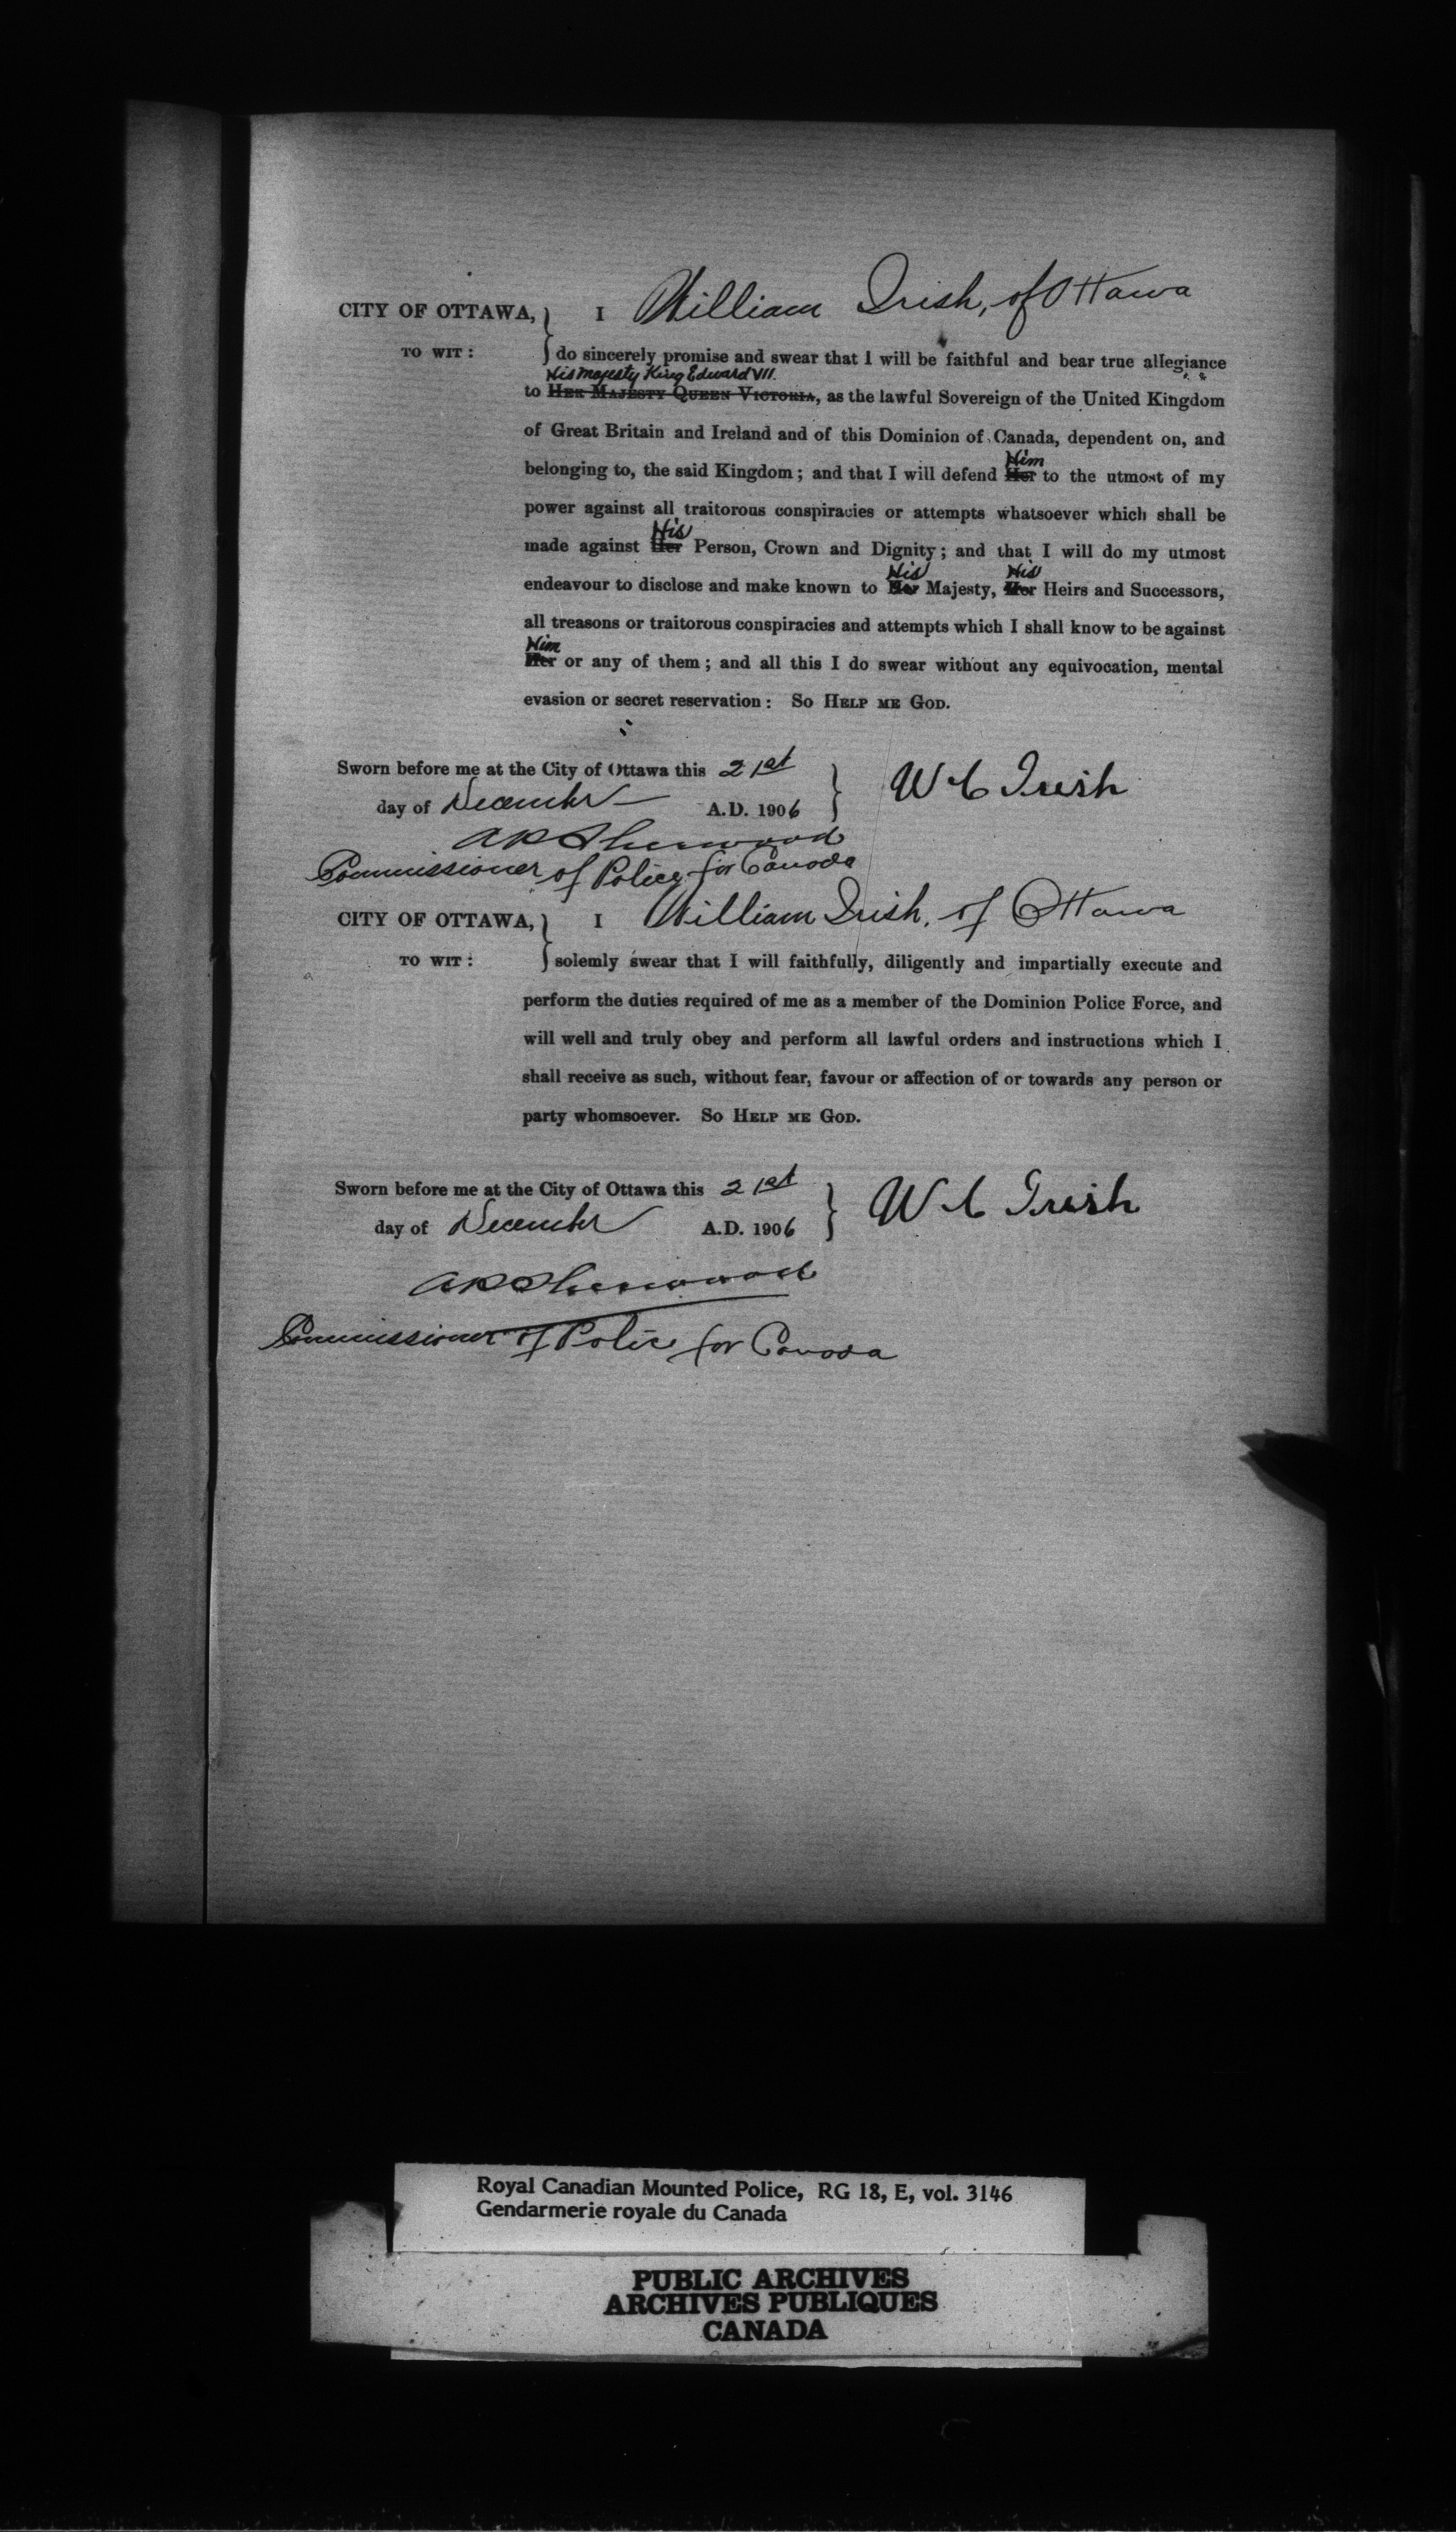 CITY OF OTTAWA, I William Irish, of Ottawa
TO WIT: do sincerely promise and swear that I will be faithful and bear true allegiance
His Majesty King Edward VII.
to HER MAJESTY QUEEN VICTORIA, as the lawful Sovereign of the United Kingdom
of Great Britain and Ireland and of this Dominion of Canada, dependent on, and
Him
belonging to, the said Kingdom; and that I will defend Her to the utmost of my
power against all traitorous conspiracies or attempts whatsoever which shall be
His
made against Her Person, Crown and Dignity; and that I will do my utmost
His His
endeavour to disclose and make known to Her Majesty, Her Heirs and Successors,
all treasons or traitorous conspiracies and attempts which I shall know to be against
Him
Her or any of them; and all this I do swear without any equivocation, mental
evasion or secret reservation: SO HELP ME GOD.
Sworn before me at the City of Ottawa this 21st
day of December A.D. 1906 W C Irish
A P Sherwood
Commissioner of Police for Canada
CITY OF OTTAWA, I William Irish, of Ottawa
TO WIT: solemly swear that I will faithfully, diligently and impartially execute and
perform the duties required of me as a member of the Dominion Police Force, and
will well and truly obey and perform all lawful orders and instructions which I
shall receive as such, without fear, favour or affection of or towards any person or
party whomsoever. SO HELP ME GOD.
Sworn before me at the City of Ottawa this 21st
day of December A.D. 1906 W C Irish
A P Sherwood
Commissioner of Police for Canada
Royal Canadian Mounted Police, RG 18, E, vol. 3146
Gendarmerie royale du Canada
PUBLIC ARCHIVES
ARCHIVES PUBLIQUES
CANADA